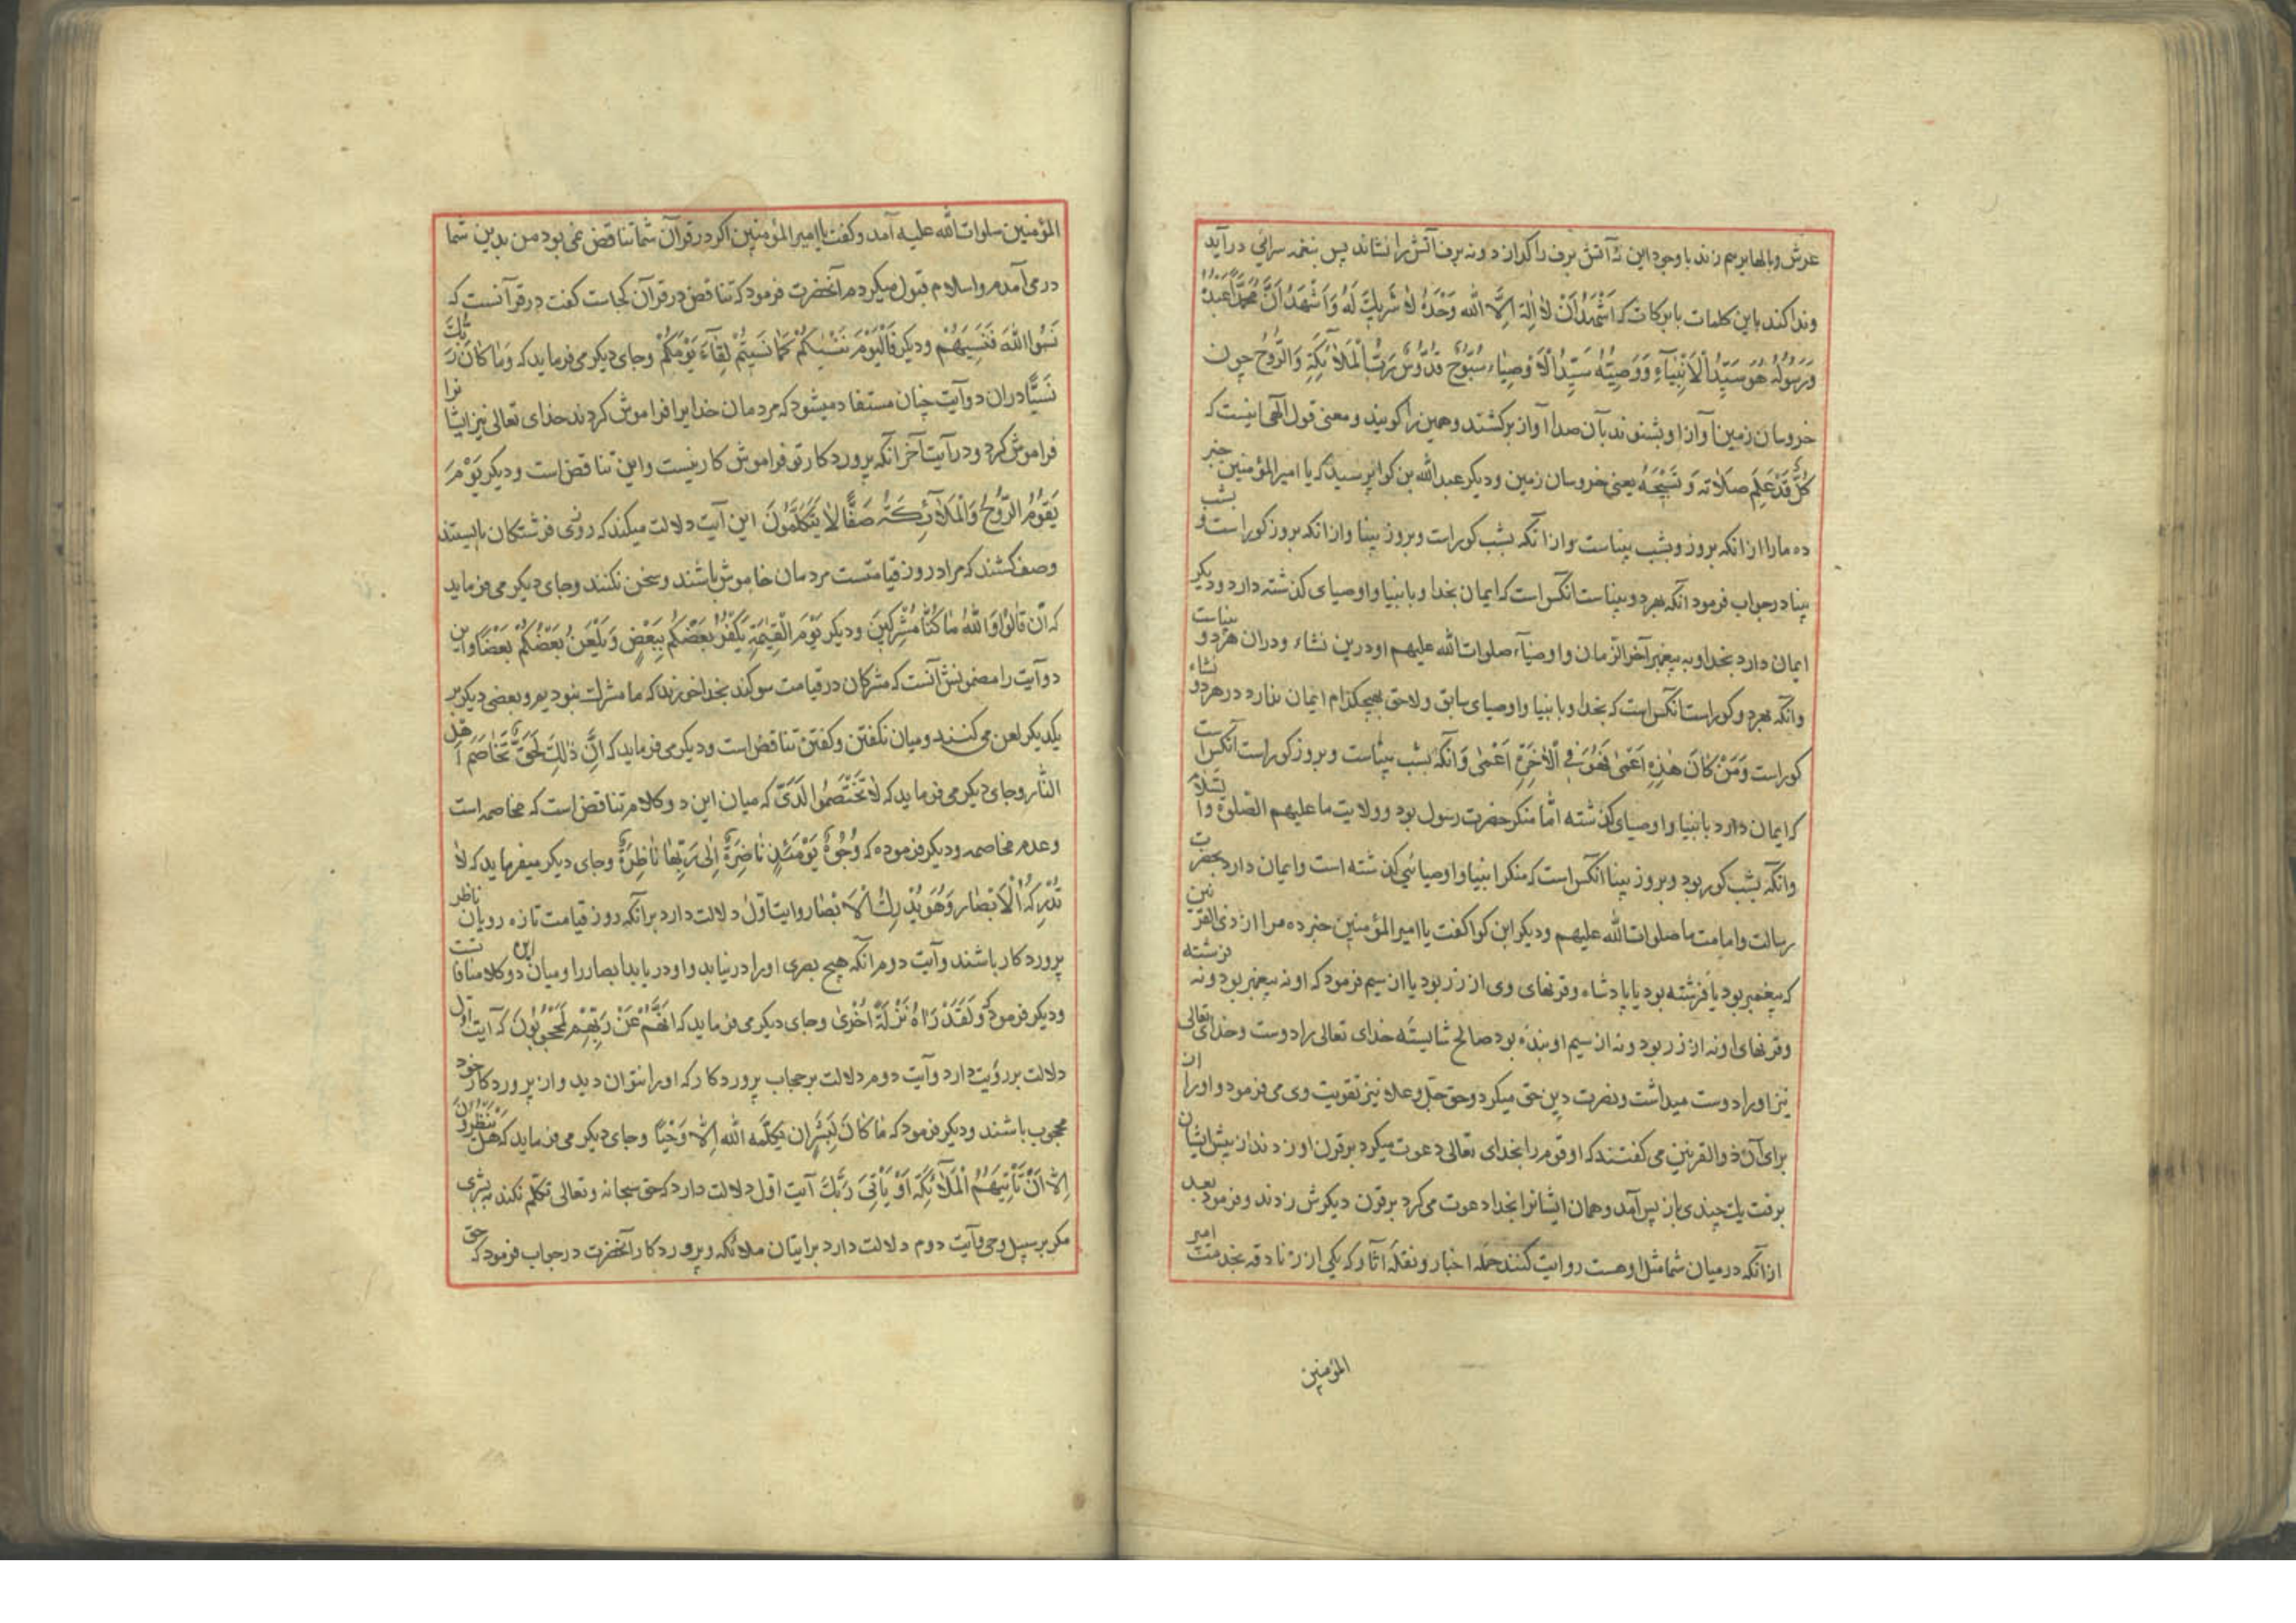 عرش و بالها برهم زند با وجود این نه آتش برف را گدازد و نه برف آتش را نشاند پس بنغمه سرائی در آید
و ندا کند باین کلمات بابرکات که اَشْهَدُ اَنْ لا اِلهَ اِلَّا الله وَحْدَهُ لا شَریكَ لَهُ وَاَشْهَدُ اَنَّ مُحَمَّداً عَبْدُهُ
وَرَسُولُهُ هُوَ سَیِّدُ الْاَنْبِیَآءِ وَوَصِیُّهُ سَیِّدُ الْاَوْصِیَاء سُبُّوحٌ قُدُّوسٌ رَبُّ الْمَلَائِکَةِ وَالرُّوحُ چون
خروسان زمین آواز او بشنوند بآن صدا آواز برکشند و همین را گویند و معنی قول الهی اینست که
کُلٌّ قَدْ عَلِمَ صَلَاتَه وَتَسْبِیحَهُ یعنی خروسان زمین و دیگر عبدالله بن کوا پرسید که یا امیرالمؤمنین خبر
ده مارا از انکه بروز و بشب بیناست و از انکه بشب کور است و بروز بینا و از انکه بروز کور است و بشب
بینا در جواب فرمود آنکه بهر دو بیناست انکس است که ایمان بخدا و بانبیا و اوصیای گذشته دارد و دیگر
ایمان دارد بخدا و به پیغمبر آخر الزمان و اوصیآء صلوات الله علیهم او درین نشاء و دران هر دو بیناست
و انکه بهر دو کور است انکس است که بخدا و بانبیا و اوصیای سابق و لاحق بهیچکدام ایمان ندارد در هر دو نشاء
کور است وَمَنْ کَانَ هٰذِهِ اَعْمٰی فَهُوَ فِی الْاٰخِرَةِ اَعْمٰی وَانکه بشب بیناست و بروز کور است آنکس است
که ایمان دارد بانبیا و اوصیای گذشته امّا منکر حضرت رسول بود و ولایت ما علیهم الصلوة والسّلام
وانکه بشب کور بود و بروز بینا انکس است که منکر انبیا و اوصیائی گذشته است و ایمان دارد بحضرت
رسالت و امامت ما صلوات الله علیهم و دیگر ابن کوا گفت یا امیرالمؤمنین خبر ده مرا از ذی القرنین
که پیغمبر بود یا فرشته بود یا پادشاه و قرنهای وی از زر بود یا از سیم فرمود که او نه پیغمبر بود و نه فرشته
و قرنهای او نه از زر بود و نه از سیم او بنده بود صالح شایسته خدای تعالی را دوست و خدای تعالی
نیز او را دوست میداشت و نصرت دین حق میکرد و حق جلّ و علا نیز تقویت وی می فرمود و او را از
برای آن ذوالقرنین می گفتند که او قوم را بخدای تعالی دعوت میکرد بر قرن او زدند از پیش ایشان
برفت یك چندی باز پس آمد و همان ایشانرا بخدا دعوت می کرد بر قرن دیگرش زدند و فرمود بعد
از انکه در میان شما مثل او هست روایت کنند حمله اخبار و نقله آثار که یکی از زنادقه بخدمت امیر
المؤمنین
المؤمنین سلوات الله علیه آمد و گفت یا امیر المؤمنین اگر در قرآن شما تناقض نمی بود من بدین شما
در می آمدم و اسلام قبول میکردم آنحضرت فرمود که تناقض در قرآن کجاست گفت در قرآنست که
نَسُوا اللهَ فَنَسِیَهُمْ و دیگر فَالْیَوْمَ نَنْسٰیکُمْ کَمَا نَسِیتُمْ لِقَآءَ یَوْمِکُمْ و جای دیگر می فرماید که وَمٰا کَانَ رَبُّكَ
نَسِیًّا دران دو آیت چنان مستفاد میشود که مردمان خدایرا فراموش کردند خدای تعالی نیز ایشانرا
فراموش کرد و در آیت آخر آنکه پروردکار تو فراموش کار نیست و این تناقض است و دیگر یَوْمَ
یَقُومُ الرُّوحُ وَالْمَلٰآئِکَتُه صَفًّا لٰا یَتَکَلَّمُونَ این آیت دلالت میکند که روزی فرشتکان بایستند
وصف کشند که مراد روز قیامتست مردمان خاموش باشند و سخن نکنند و جای دیکر می فرماید
که اَنْ قٰالُوْا وَاللهُ مٰا کُنّٰا مُشْرِکِینَ و دیکر یَوْمَ الْقِیٰمَةِ یَکْفُرُ بَعْضُکُم بِبَعْضٍ وَیَلْعَنُ بَعْضُکُمْ بَعْضًا و این
دو آیت را مضمونش آنست که مشرکان در قیامت سوکند بخدا خورند که ما مشرك نبودیم و بعضی دیکر بر
یکدیکر لعن می کنند و میان نکفتن و کفتن تناقض است و دیکر می فرماید که اِنَّ ذٰلِكَ لَحَقٌّ تَخَاصُمَ اَهْل
النّار و جای دیکر می فرماید که لٰا تَخْتَصِمُوا لَدَیَّ که میان این دو کلام تناقض است که مخاصمه است
و عدم مخاصمه و دیکر فرموده که وُجُوهٌ یَوْمَئِذٍ نٰاضِرَةٌ اِلٰی رَبِّهٰا نٰاظِرَةٌ و جای دیکر میفرماید که لٰا
تُدْرِکُهُ الْاَبْصٰار وَهُوَ یُدْرِكُ الْاَبْصٰار و ایت اوّل دلالت دارد بر آنکه روز قیامت تازه رویان ناظر
پروردکار باشند و آیت دوم آنکه هیچ بصری او را در نیابد و او دریابد ابصار را و میان این دو کلام منافاتست
و دیکر فرمود که وَلَقَدْ رَاٰهُ نَزْلَةً اُخْرٰی و جای دیکر می فرماید که اِنَّهُمْ عَنْ رَبِّهِمْ لَمَحْجُوبُونَ که آیت اول
دلالت بر رؤیت دارد و آیت دوم دلالت بر حجاب پروردکار که او را نتوان دید و از پروردکار خود
محجوب باشند و دیکر فرمود که مٰا کٰانَ لِبَشَرٍ ان یُکَلِّمَه الله اِلّٰا وَحْیًا و جای دیکر می فرماید که هَلْ یَنْظُرُونَ
اِلّٰا اَنْ تَأْتِیَهُمُ الْمَلٰآئِکَه اَوْ یَأْتِیَ رَبُّكَ آیت اوّل دلالت دارد که حق سبحانه و تعالی تکلّم نکند به بشری
مکر بر سبیل وحی و آیت دوم دلالت دارد بر اتیان ملائکه و پروردکار آنحضرت در جواب فرمود که حق